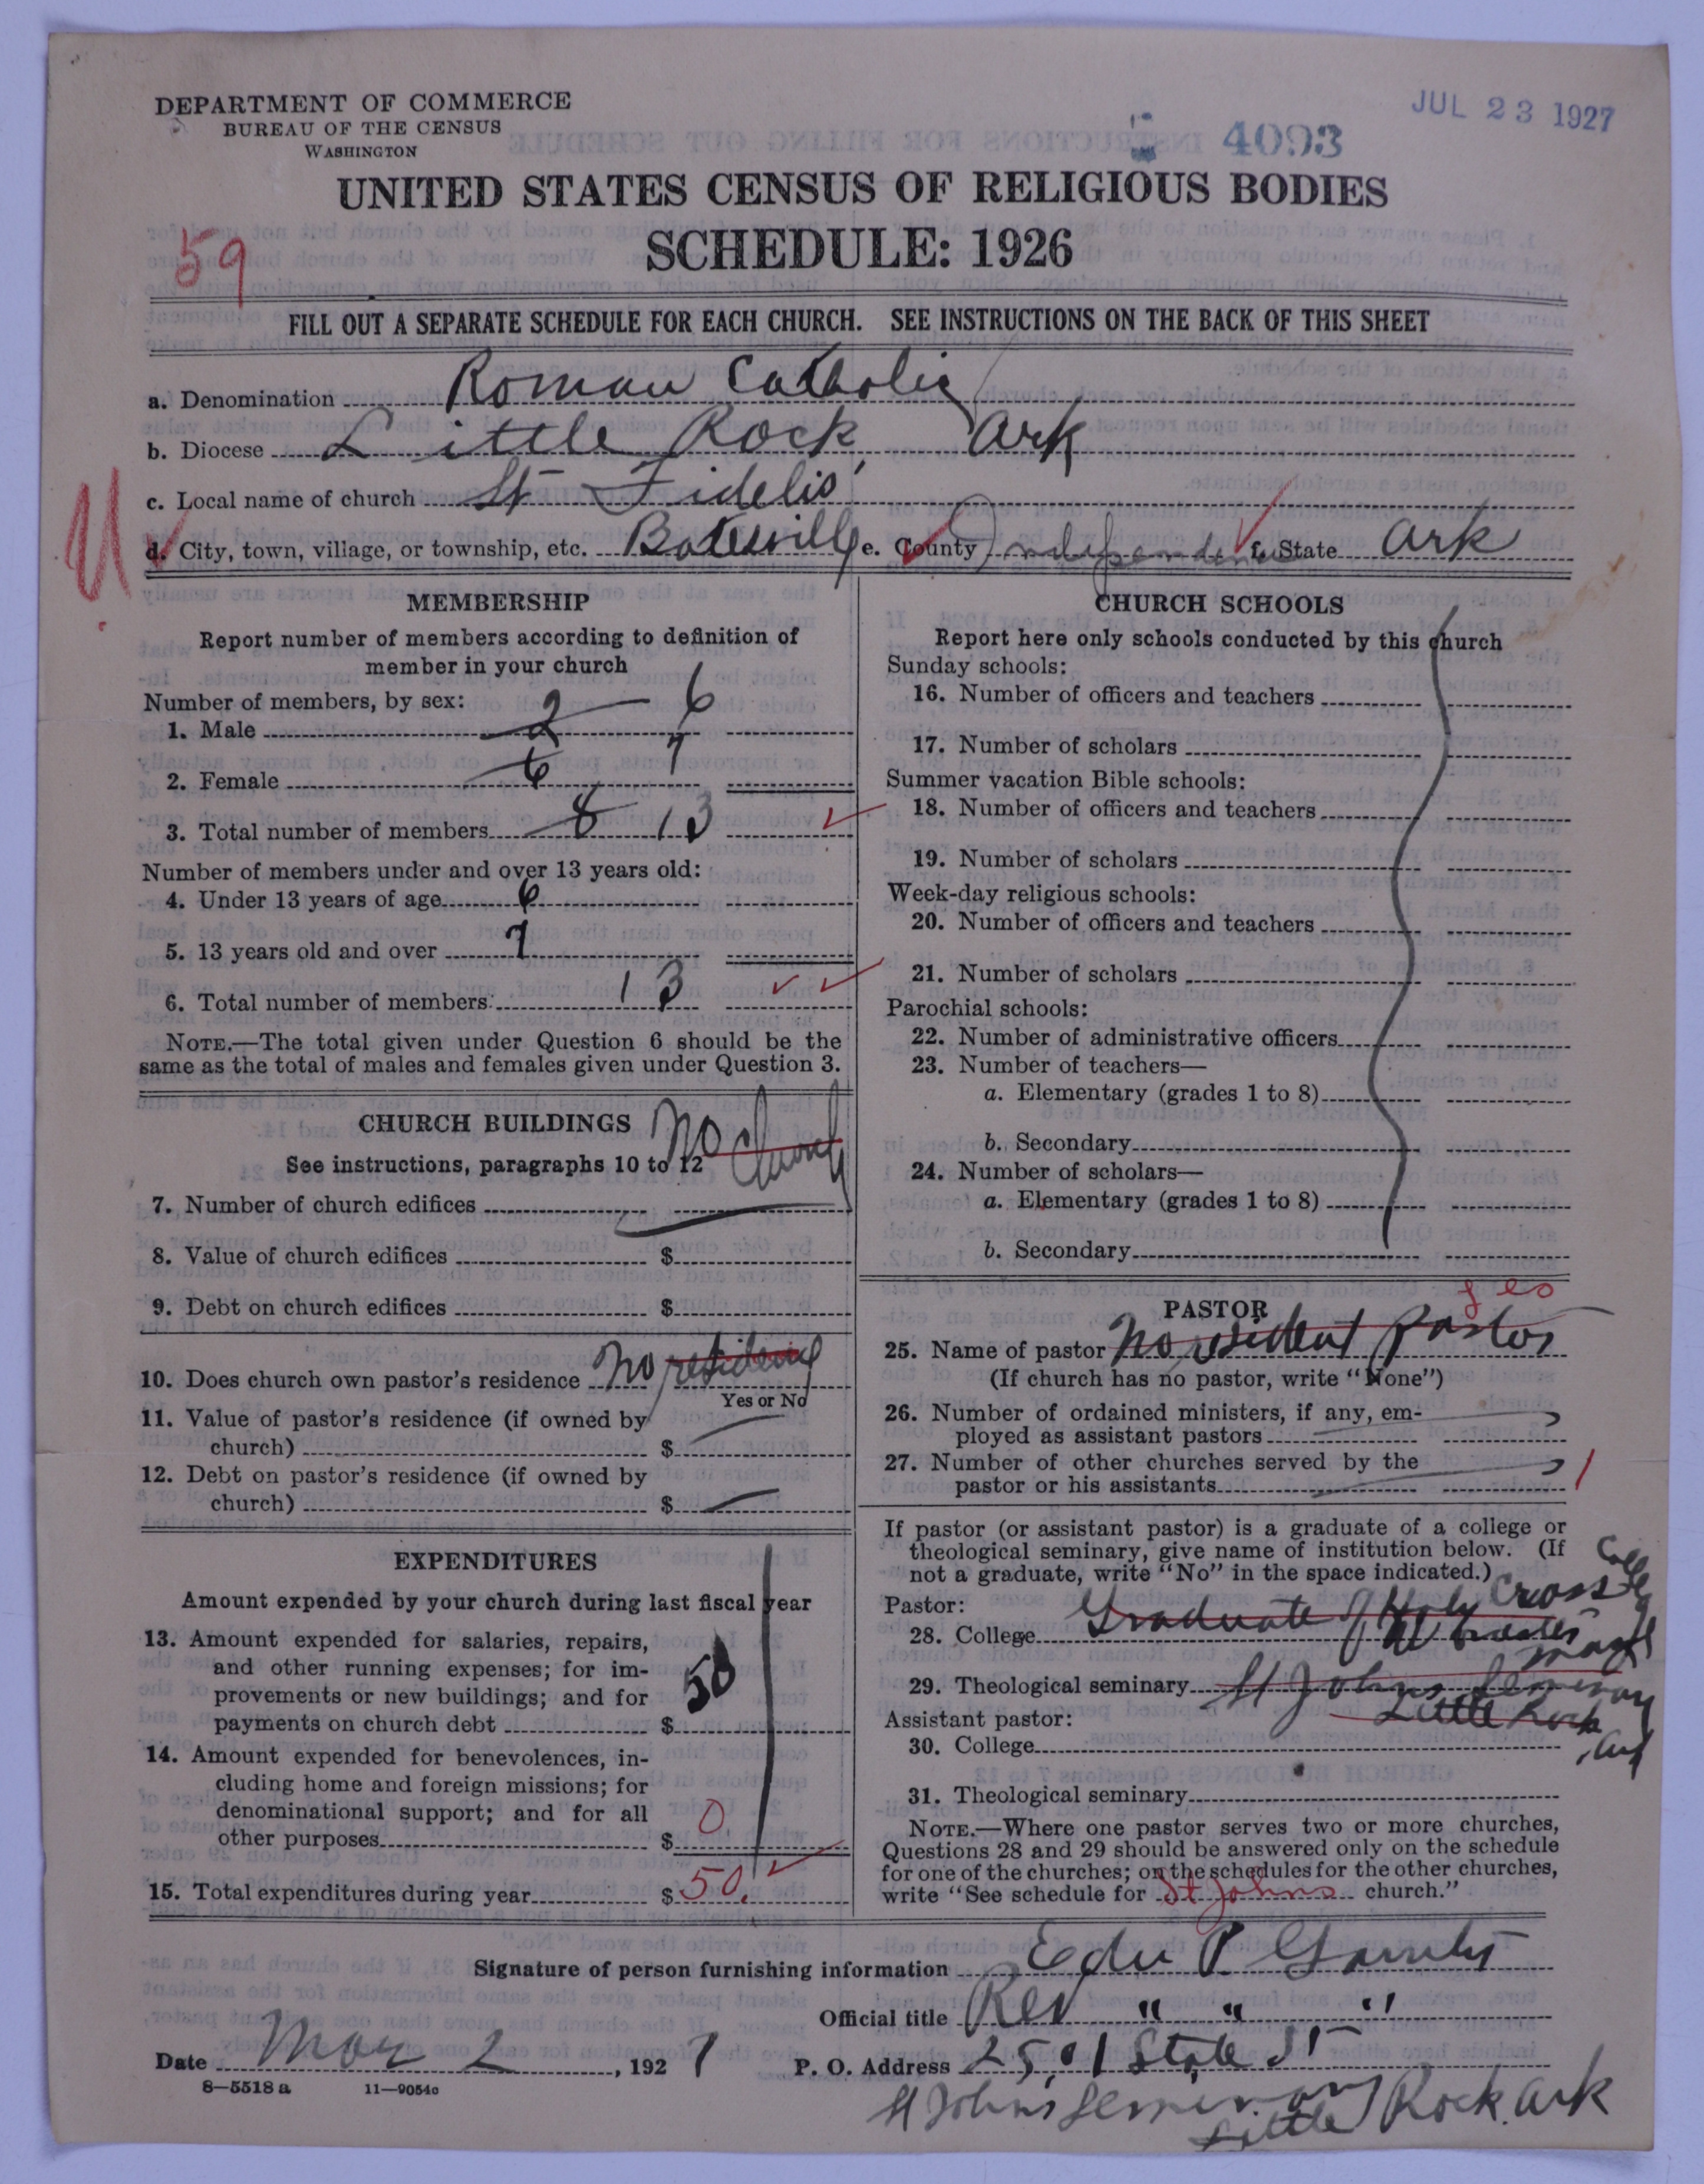 JUL 23 1927
4093
DEPARTMENT OF COMMERCE
BUREAU OF THE CENSUS
WASHINGTON
UNITED STATES CENSUS OF RELIGIOUS BODIES
SCHEDULE: 1926
59
FILL OUT A SEPARATE SCHEDULE FOR EACH CHURCH. SEE INSTRUCTIONS ON THE BACK OF THIS SHEET
a. Denomination Roman Catholic
b. Diocese Little Rock, Ark
c. Local name of church St Fidelis
d. City, town, village, or township, etc. Batesville e. County Independence f. State Ark
U
MEMBERSHIP
Report number of members according to definition of
member in your church
Number of members, by sex:
1. Male 2 6
2. Female 6 7
3. Total number of members 8 13
Number of members under and over 13 years old:
4. Under 13 years of age 6
5. 13 years old and over 7
6. Total number of members: 13
NOTE.—The total given under Question 6 should be the
same as the total of males and females given under Question 3.
CHURCH BUILDINGS
See instructions, paragraphs 10 to 12
No Church
7. Number of church edifices
8. Value of church edifices $
9. Debt on church edifices $
10. Does church own pastor's residence No residence
Yes or No
11. Value of pastor's residence (if owned by
church) $
12. Debt on pastor's residence (if owned by
church) $
EXPENDITURES
Amount expended by your church during last fiscal year
13. Amount expended for salaries, repairs,
and other running expenses; for im-
provements or new buildings; and for
payments on church debt $ 50
14. Amount expended for benevolences, in-
cluding home and foreign missions; for
denominational support; and for all
other purposes $ 0
15. Total expenditures during year $ 50.
CHURCH SCHOOLS
Report here only schools conducted by this church
Sunday schools:
16. Number of officers and teachers
17. Number of scholars
Summer vacation Bible schools:
18. Number of officers and teachers
19. Number of scholars
Week-day religious schools:
20. Number of officers and teachers
21. Number of scholars
Parochial schools:
22. Number of administrative officers
23. Number of teachers—
a. Elementary (grades 1 to 8)
b. Secondary
24. Number of scholars—
a. Elementary (grades 1 to 8)
b. Secondary
PASTOR
yes
25. Name of pastor No resident Pastor
(If church has no pastor, write "None")
26. Number of ordained ministers, if any, em-
ployed as assistant pastors
27. Number of other churches served by the
pastor or his assistants 1
If pastor (or assistant pastor) is a graduate of a college or
theological seminary, give name of institution below. (If
not a graduate, write "No" in the space indicated.)
Pastor:
28. College Graduate of Holy Cross College
Mass
29. Theological seminary St Johns Seminary
Little Rock, Ark
Assistant pastor:
30. College
31. Theological seminary
NOTE.—Where one pastor serves two or more churches,
Questions 28 and 29 should be answered only on the schedule
for one of the churches; on the schedules for the other churches,
write "See schedule for St Johns church."
Signature of person furnishing information Edw P.
Official title Rev " " "
Date Mar 2, 1927 P. O. Address 2501 State St
St Johns Seminary Little Rock. Ark
8—5518 a 11—9054c